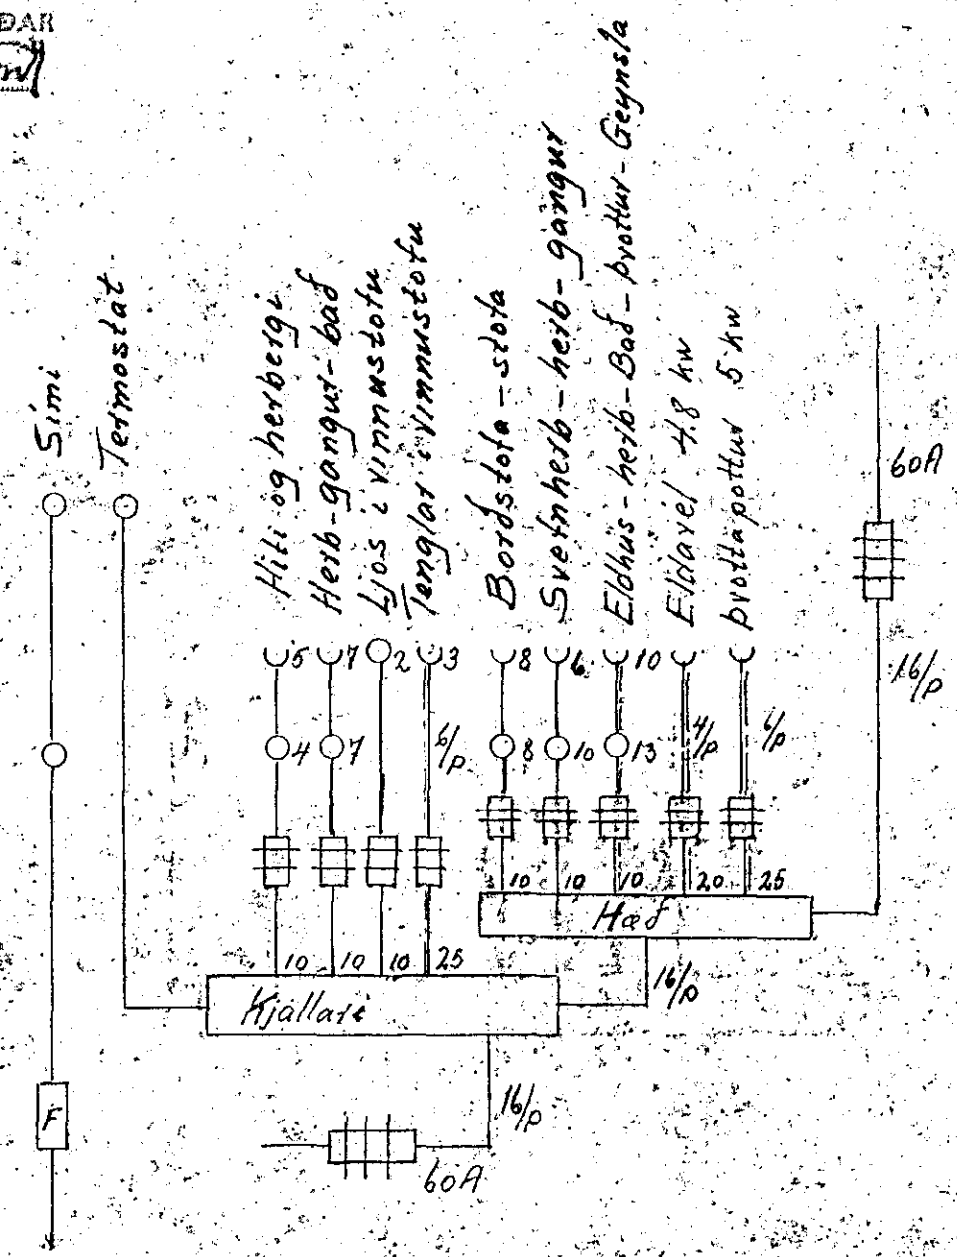 DAR
Sími
Termostat
Hiti og herbergi
Herb-gangur-bað
Ljos i vinnustofu
Tenglar i vinnustofu
Bordstofa - stofa
Svefnherb - herb - gangur
Eldhús - herb - Bað - þvottur - Geymsla
Eldavél 4.8 kw
þvottapottur 5 kw
60A
16/p
5 7 2 3 8 6 10
4 7 6/p 8 10 13 4/p 6/p
10 10 10 20 25
Hæð
10 10 10 25
16/p
Kjallari
F
16/p
60A